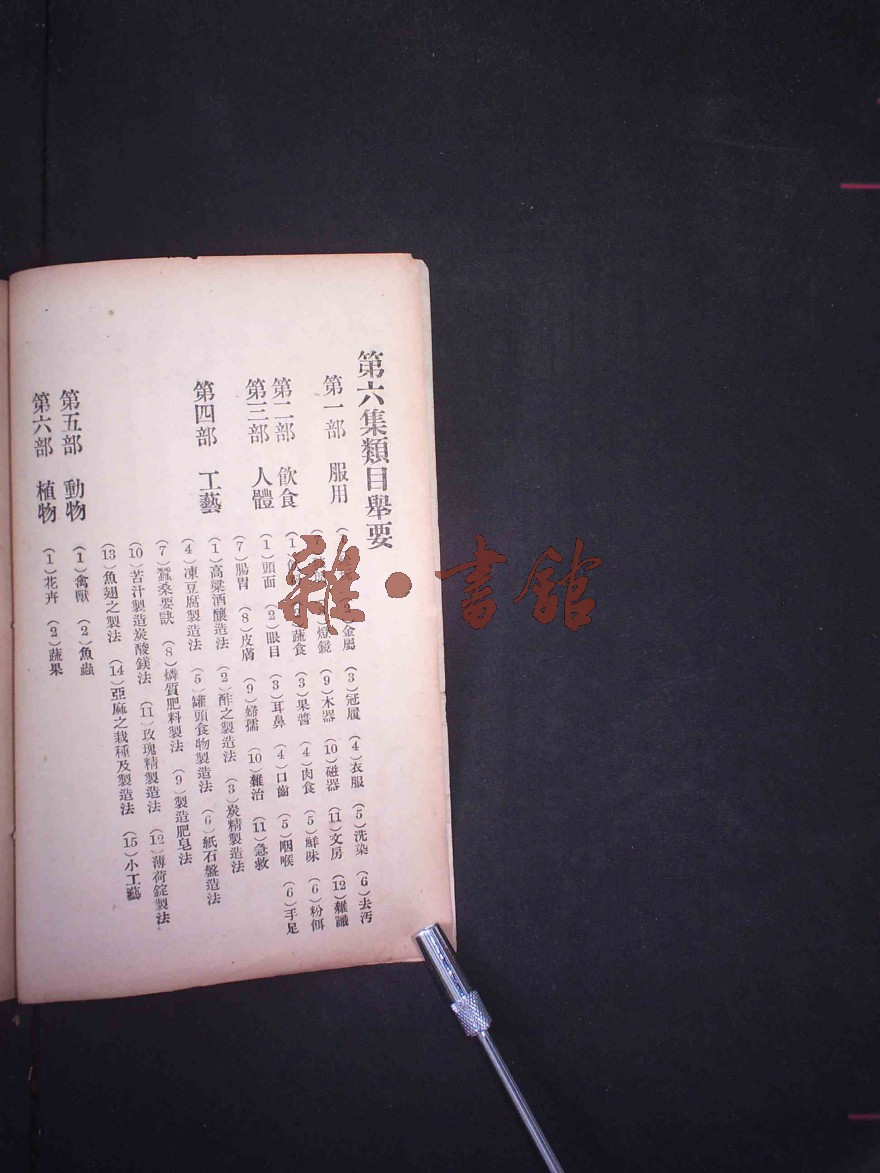 第六集類目舉要
第一部 服用
金屬 (3)冠履 (4)衣服 (5)洗染 (6)去汚
燈鏡 (9)木器 (10)磁器 (11)文房 (12)雜識
第二部 飲食
蔬食 (3)果醬 (4)肉食 (5)鮮味 (6)粉餌
第三部 人體
(1)頭面 (2)眼目 (3)耳鼻 (4)口齒 (5)咽喉 (6)手足
(7)腸胃 (8)皮膚 (9)婦孺 (10)雜治 (11)急救
第四部 工藝
(1)高粱酒釀造法 (2)酢之製造法 (3)炭精製造法
(4)凍豆腐製造法 (5)罐頭食物製造法 (6)紙石盤造法
(7)蠶桑要訣 (8)燐質肥料製法 (9)製造肥皂法
(10)苦汁製造炭酸鎂法 (11)玫瑰精製造法 (12)薄荷錠製法
(13)魚翅之製法 (14)亞麻之栽種及製造法 (15)小工藝
第五部 動物
(1)禽獸 (2)魚蟲
第六部 植物
(1)花卉 (2)蔬果
雜·書館